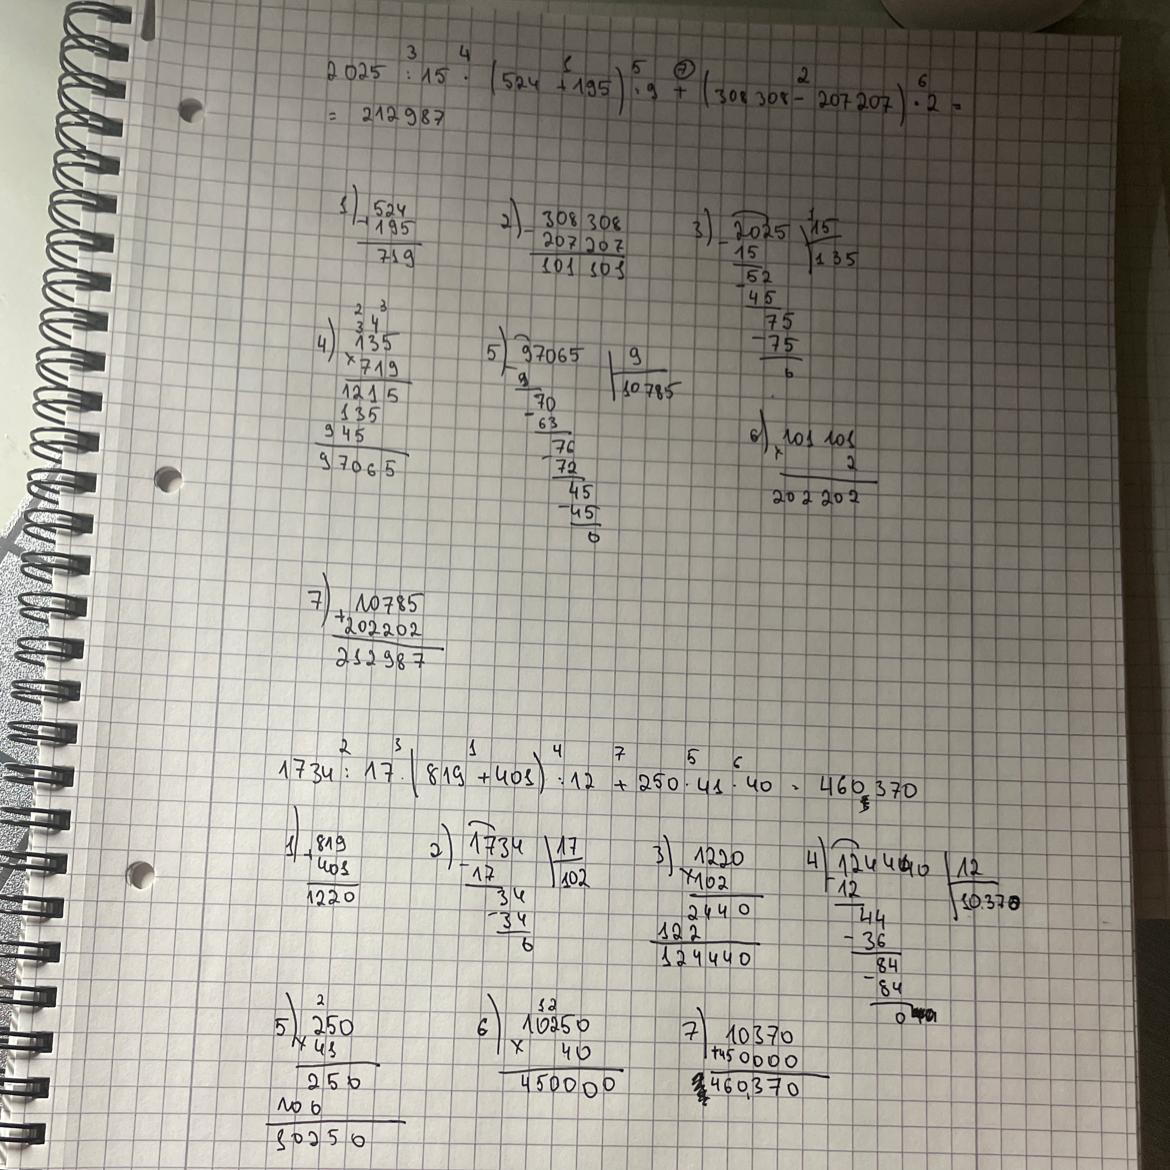 3 4 1 5 7 2 6
2025 : 15 · (524 + 195) : 9 + (308 308 - 207 207) · 2 =
= 212987
1) 524
+ 195
719
2) - 308 308
207 207
101 101
3) - 2025 | 15
15 | 135
- 52
45
75
- 75
0
2 3
3 4
4) 135
× 719
1215
135
945
97065
5) - 97065 | 9
9 | 10785
70
- 63
76
- 72
45
- 45
0
6) 101 101
× 2
202 202
7) + 10785
202202
212987
2 3 1 4 7 5 6
1734 : 17 · (819 + 401) : 12 + 250 · 41 · 40 = 460 370
1) + 819
401
1220
2) - 1734 | 17
17 | 102
34
- 34
0
3) 1220
× 102
2440
122
124440
4) - 124440 | 12
12 | 10370
44
- 36
84
- 84
0
2
5) 250
× 41
250
100
10250
12
6) 10250
× 40
450000
7) 10370
+ 450000
460,370